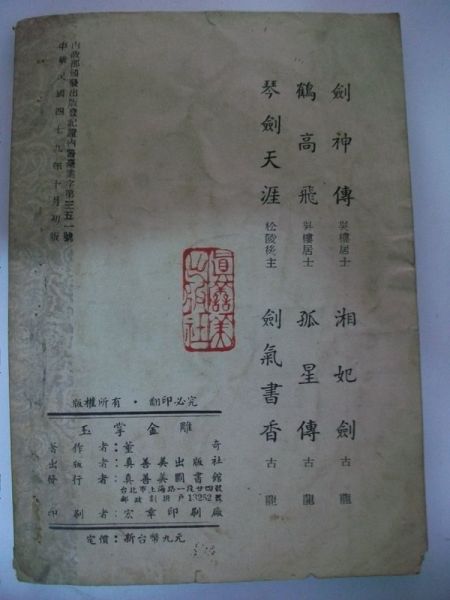 劍神傳 吳樓居士 湘妃劍 古龍
鶴高飛 吳樓居士 孤星傳 古龍
琴劍天涯 松陵後主 劍氣書香 古龍
內政部頒發出版登記證內警臺業字第三五一號
中華民國四十九年十月初版
真善美出版社
版權所有・翻印必究
玉掌金鵰
著作者：董奇
出版者：真善美出版社
發行者：真善美圖書館
台北市上海路一段廿四號
郵政劃撥戶13252號
印刷者：宏章印刷廠
定價：新台幣九元